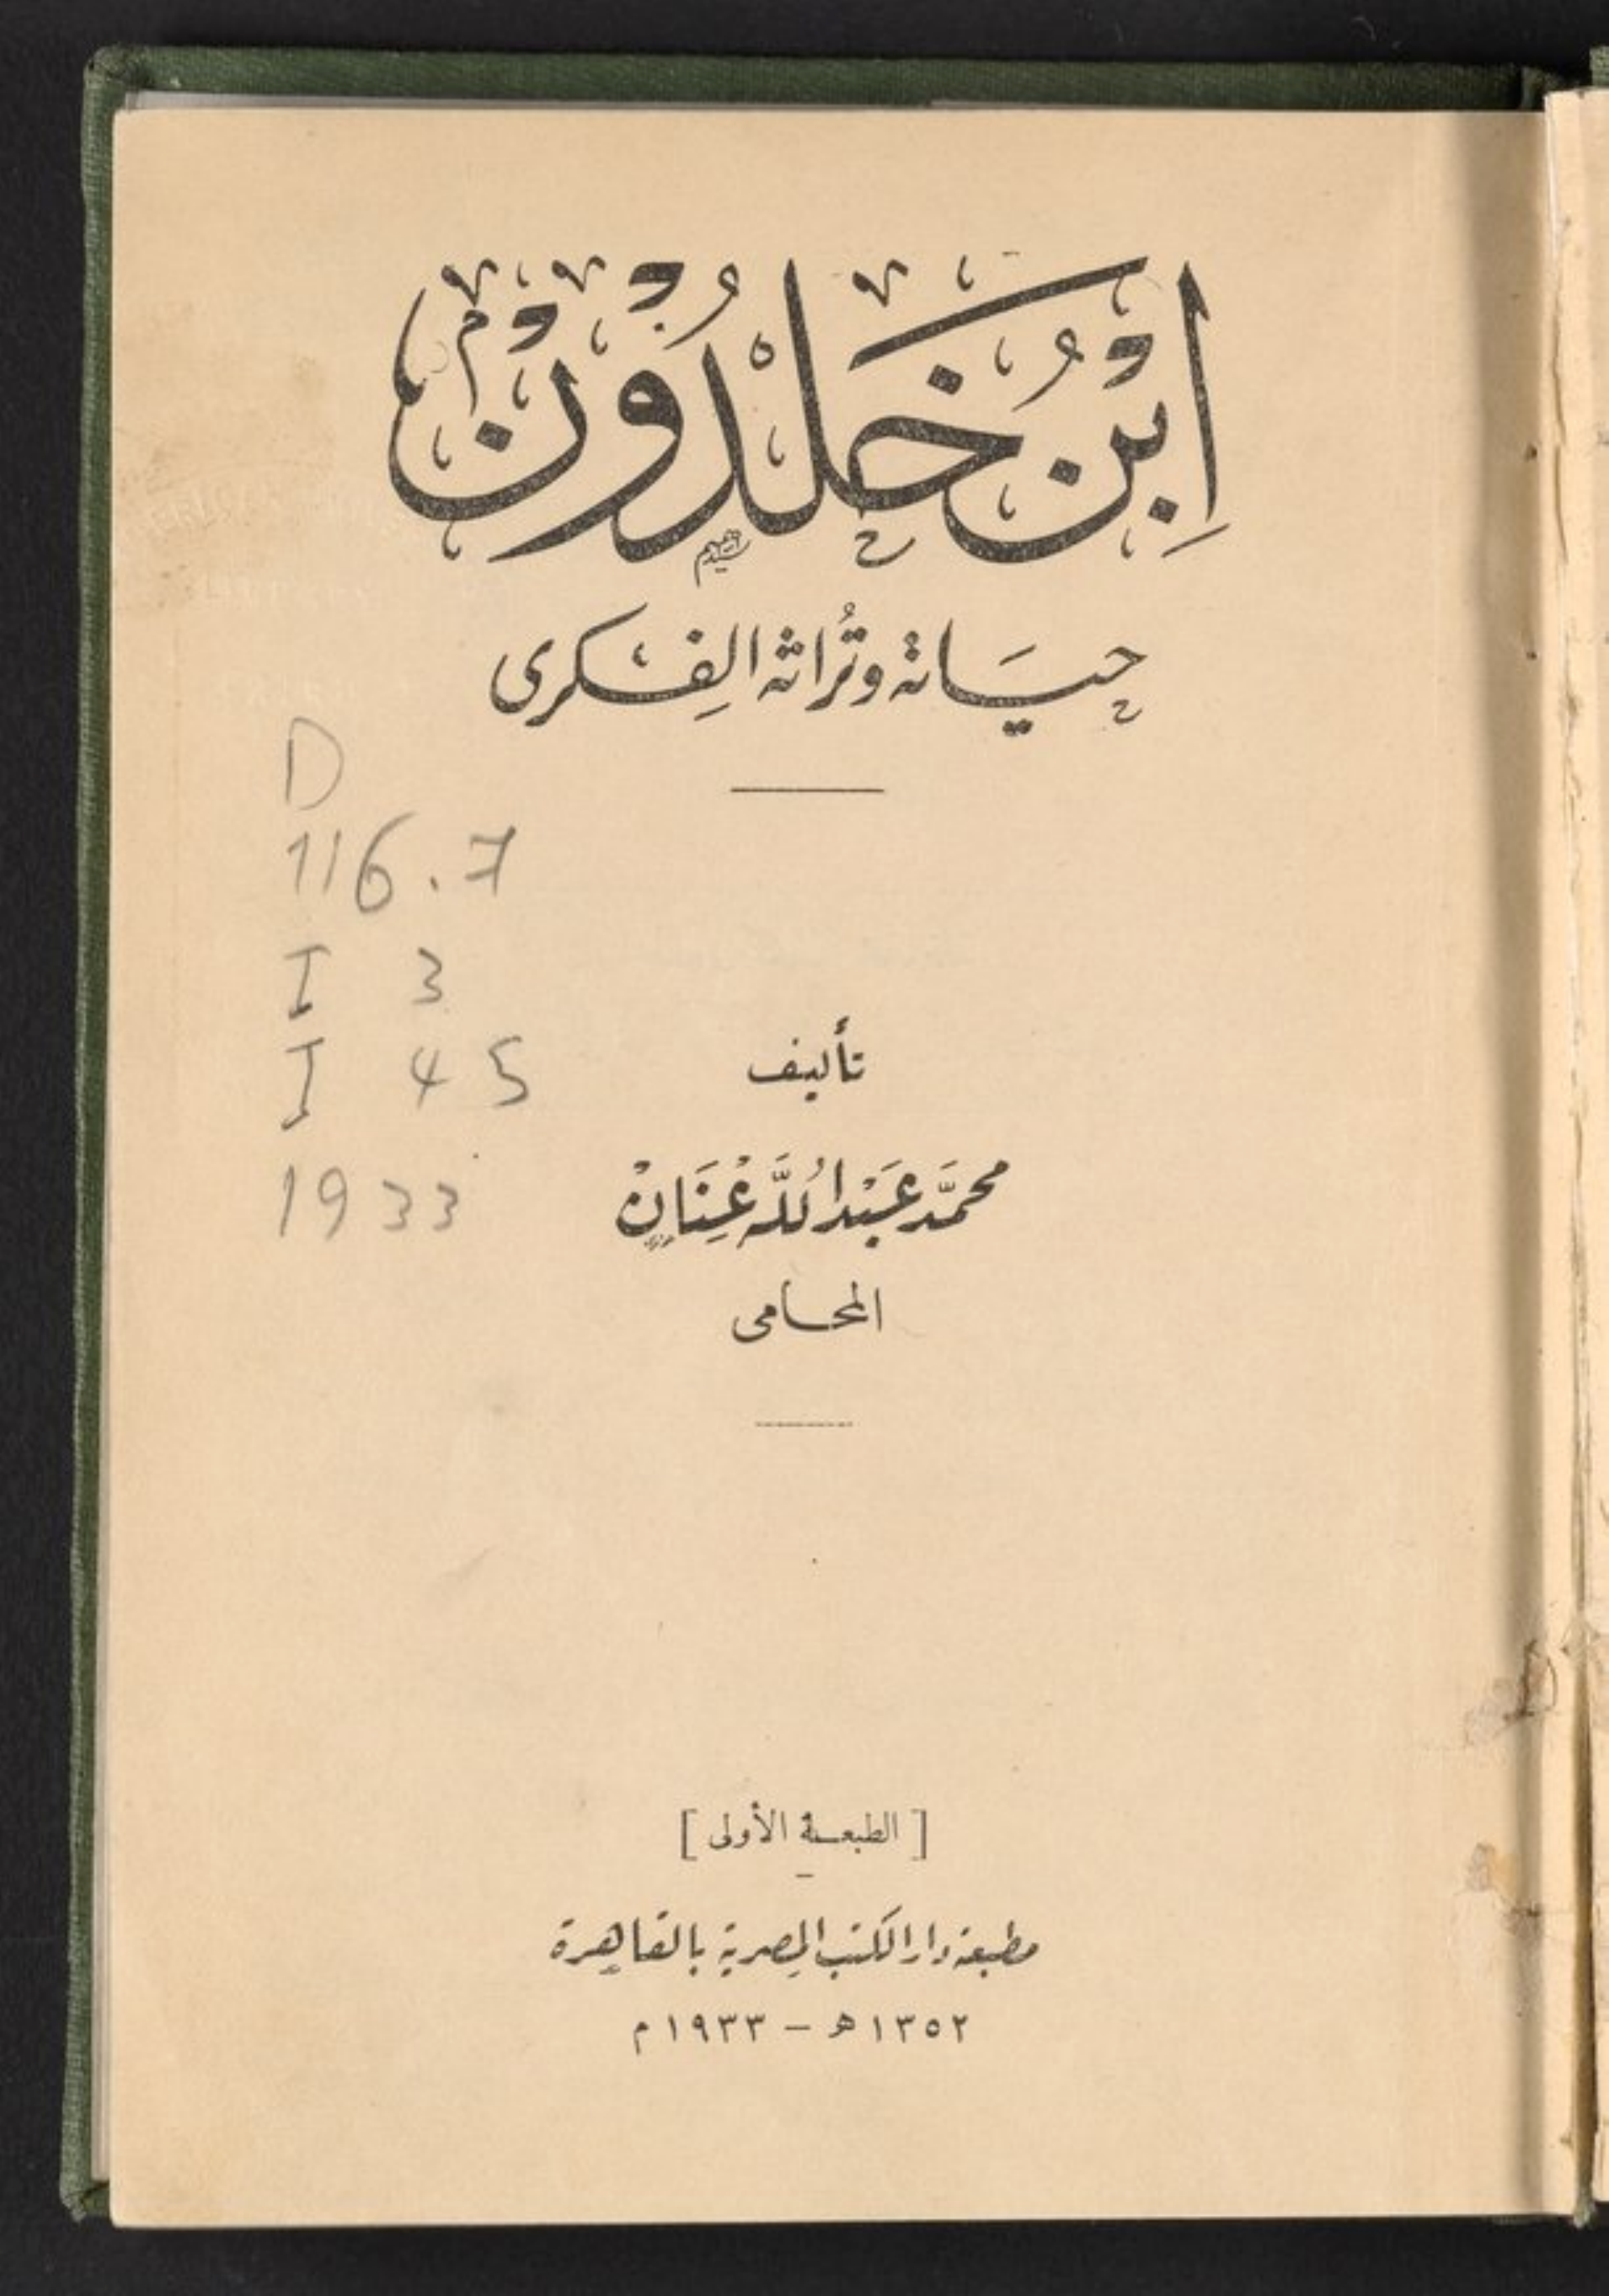 ابْنُ خَلْدُوْنْ
حيَاته وتُراثه الفِكرى
D
116.7
I 3
I 45
1933
تأليف
محمَّد عَبْد اللَّه عِنَانْ
المحامى
[الطبعة الأولى]
مطبعة دار الكتب المصرية بالقاهرة
١٣٥٢ هـ – ١٩٣٣ م